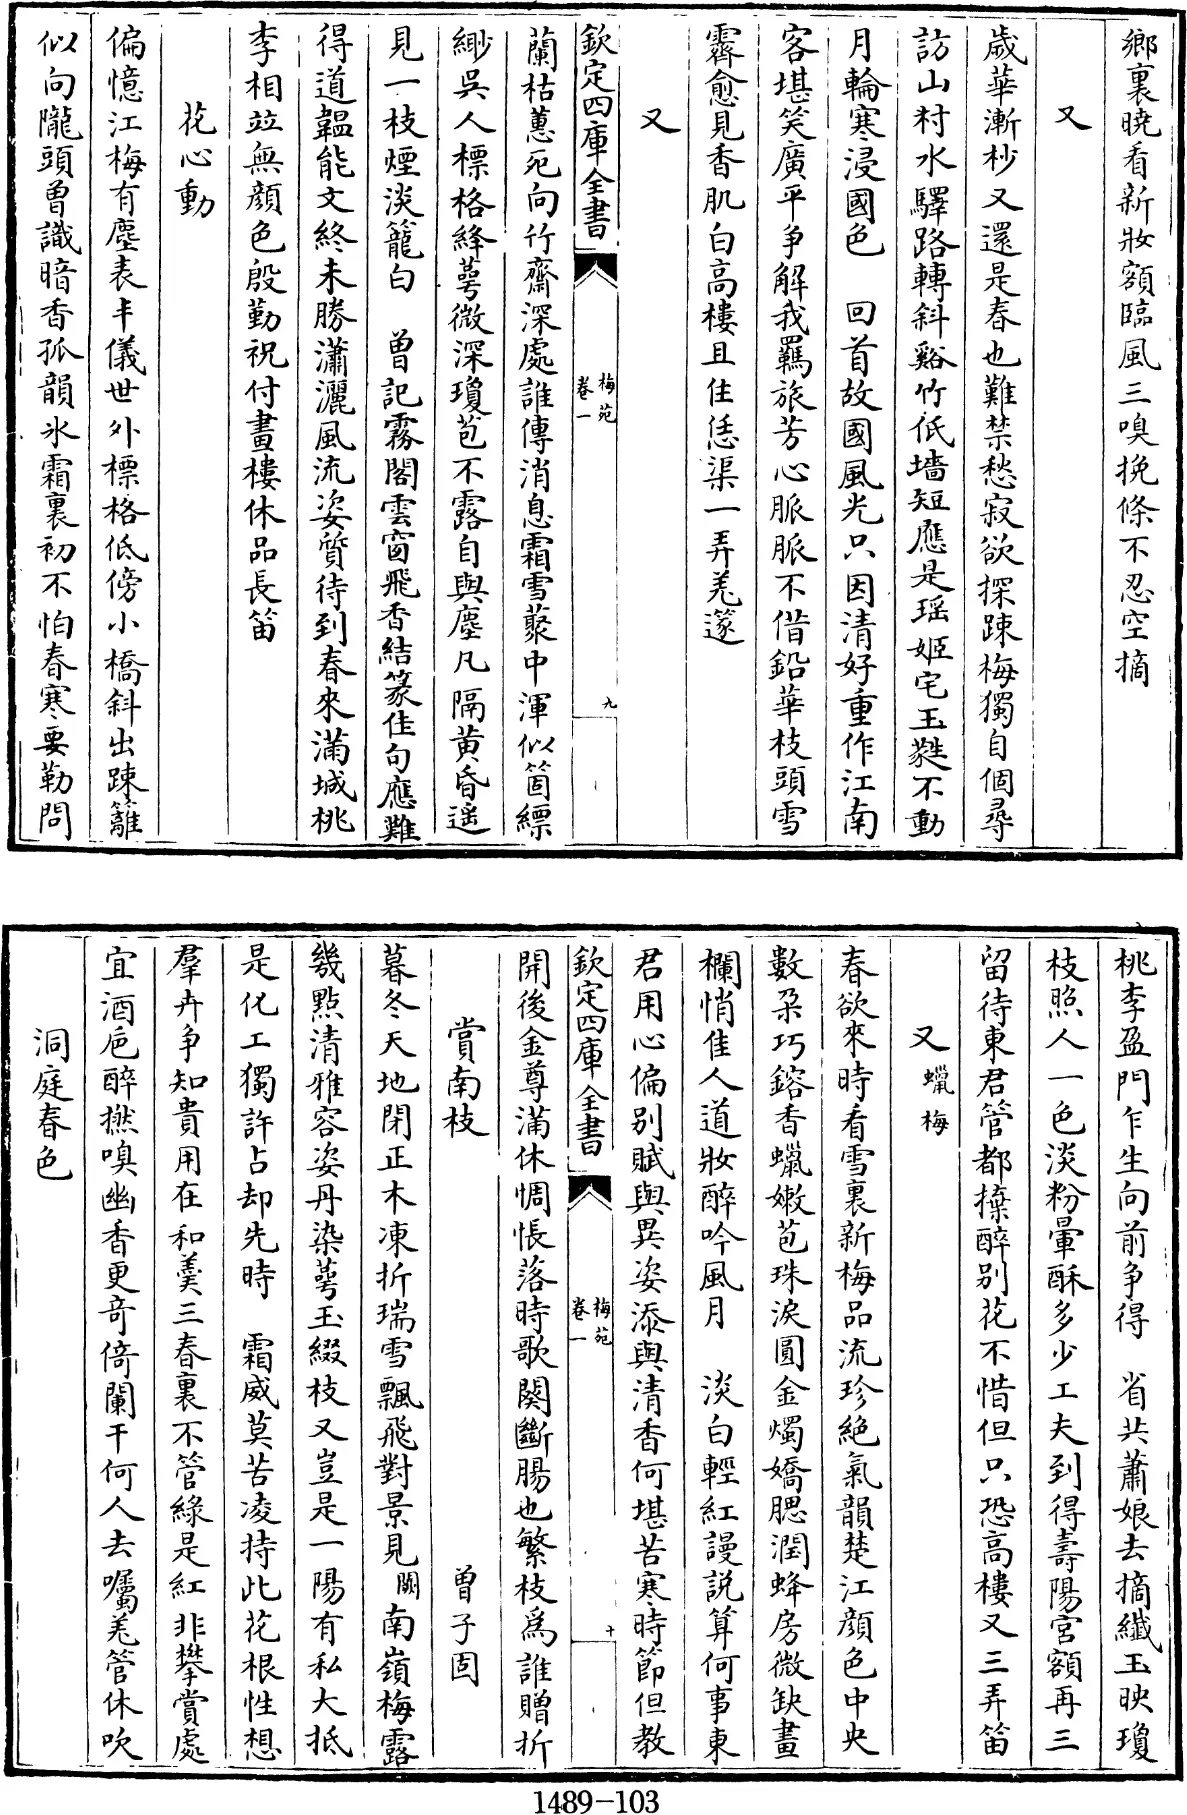 鄉裏曉看新妝額臨風三嗅挽條不忍空摘
又
歲華漸杪又還是春也難禁愁寂欲探踈梅獨自個尋
訪山村水驛路轉斜谿竹低墻短應是瑶姬宅玉蕤不動
月輪寒浸國色　回首故國風光只因清好重作江南
客堪笑廣平争解我羈旅芳心脈脈不借鉛華枝頭雪
霽愈見香肌白高樓且住恁渠一弄羌篴
又
欽定四庫全書
梅苑
卷一
九
蘭枯蕙死向竹齋深處誰傳消息霜雪藂中渾似箇縹
緲吳人標格絳蕚微深瓊苞不露自與塵凡隔黄昏遥
見一枝煙淡籠白　曾記霧閣雲窗飛香結篆佳句應難
得道韞能文終未勝瀟灑風流姿質待到春來滿城桃
李相竝無顔色殷勤祝付畫樓休品長笛
花心動
偏憶江梅有塵表丰儀世外標格低傍小橋斜出踈籬
似向隴頭曾識暗香孤韻氷霜裏初不怕春寒要勒問
桃李盈門乍生向前争得　省共蕭娘去摘纖玉映瓊
枝照人一色淡粉暈酥多少工夫到得壽陽宫額再三
留待東君管都㨿醉别花不惜但只恐高樓又三弄笛
又蠟梅
春欲來時看雪裏新梅品流珍絶氣韻楚江顔色中央
數朶巧鎔香蠟嫩苞珠淚圓金燭嬌腮潤蜂房微缺畫
欄悄佳人道妝醉吟風月　淡白輕紅謾説算何事東
君用心偏别賦與異姿添與清香何堪苦寒時節但教
欽定四庫全書
梅苑
卷一
十
開後金尊滿休惆悵落時歌闋斷腸也繁枝爲誰贈折
賞南枝　曾子固
暮冬天地閉正木凍折瑞雪飄飛對景見闕南嶺梅露
幾點清雅容姿丹染蕚玉綴枝又豈是一陽有私大抵
是化工獨許占却先時　霜威莫苦凌持此花根性想
羣卉争知貴用在和羹三春裏不管綠是紅非攀賞處
宜酒巵醉撚嗅幽香更奇倚闌干何人去囑羌管休吹
洞庭春色
1489-103